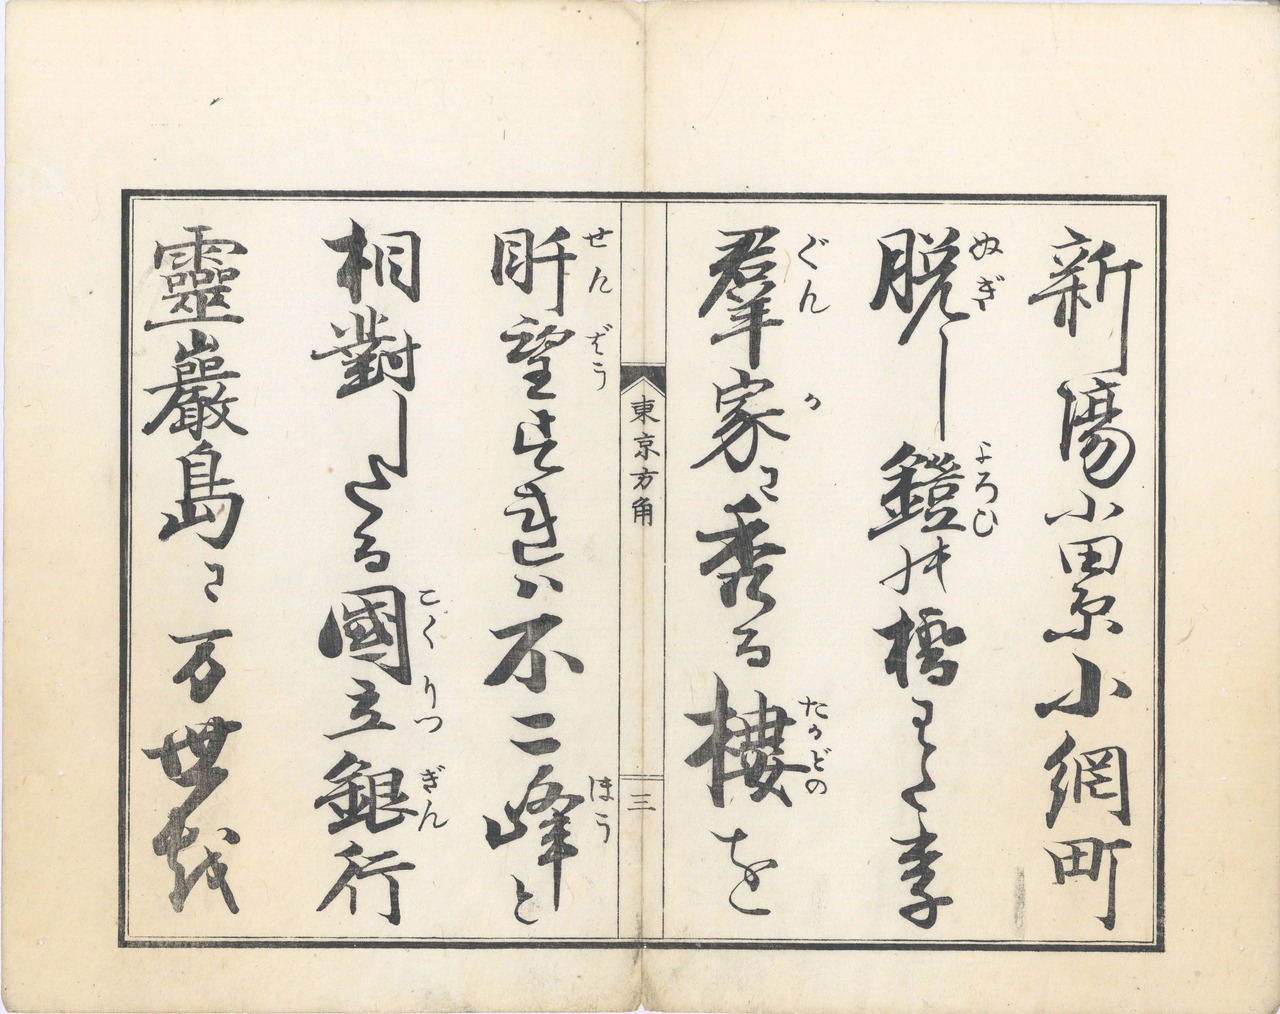 新場小田原小網町
ぬぎ よろひ
脱し鎧の橋わたり
ぐん か たかどの
羣家に秀る樓を
東京方角
三
せん ばう ほう
望すれハ不二峰と
こく りつ ぎん
相對したる國立銀行
靈巖島に万世越